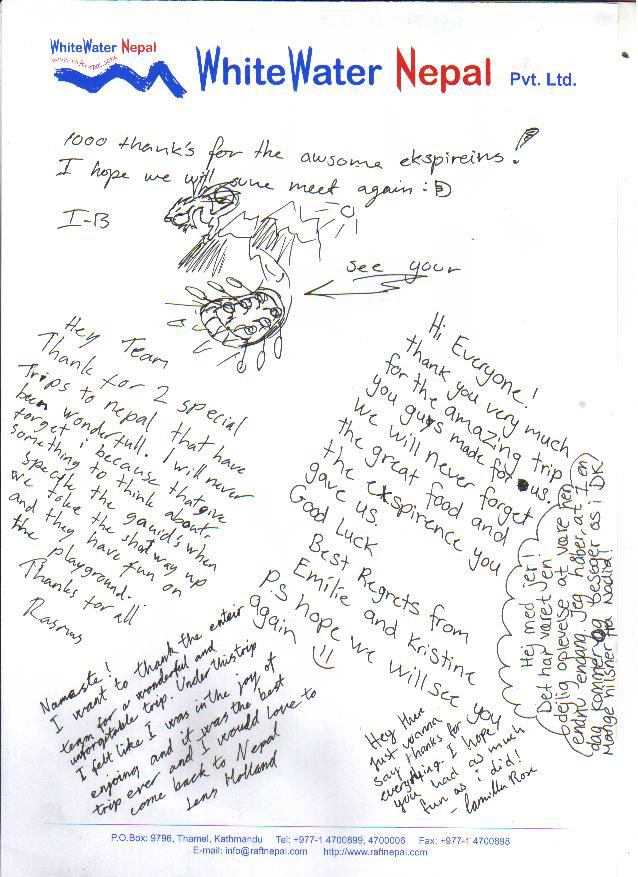 WhiteWater Nepal
www.raftnepal.com
WhiteWater Nepal Pvt. Ltd.
1000 thank's for the awsome ekspireins!
I hope we will sune meet again :D
I-B
see your
Hey Team
Thank for 2 special
Trips to nepal that have
been wonderfull. I will never
forget i because that give
something to think about.
specile the gauid's when
we take the shot way up
and they have fun on
the playground.
Thanks for all
Rasmus
Hi Everyone!
thank you very much
for the amazing trip
you guys made for us.
We will never forget
the great food and
the exspirence you
gave us.
Good Luck
Best Regrets from
Emilie and Kristine
Ps hope we will see you
again !!
Hej med jer!
Det har været jen
dejlig oplevelse at være hen
endnu engang. Jeg håber, at I en
dag kommer og besøger as i DK!
Mange hilsner fra Nadia!
Namaste!
I want to thank the enteir
team for a wonderful and
unforgitable trip. Under this trip
I felt like I was in the joy of
enjoing and it was the best
trip ever and I would love to
come back to Nepal
Lens Holland
Hey there
Just wanna
say thanks for
everything. I hope
you had as much
fun as i did!
- Camilla Rose
P.O.Box: 9796, Thamel, Kathmandu Tel: +977-1 4700899, 4700006 Fax: +977-1 4700898
E-mail: info@raftnepal.com http://www.raftnepal.com